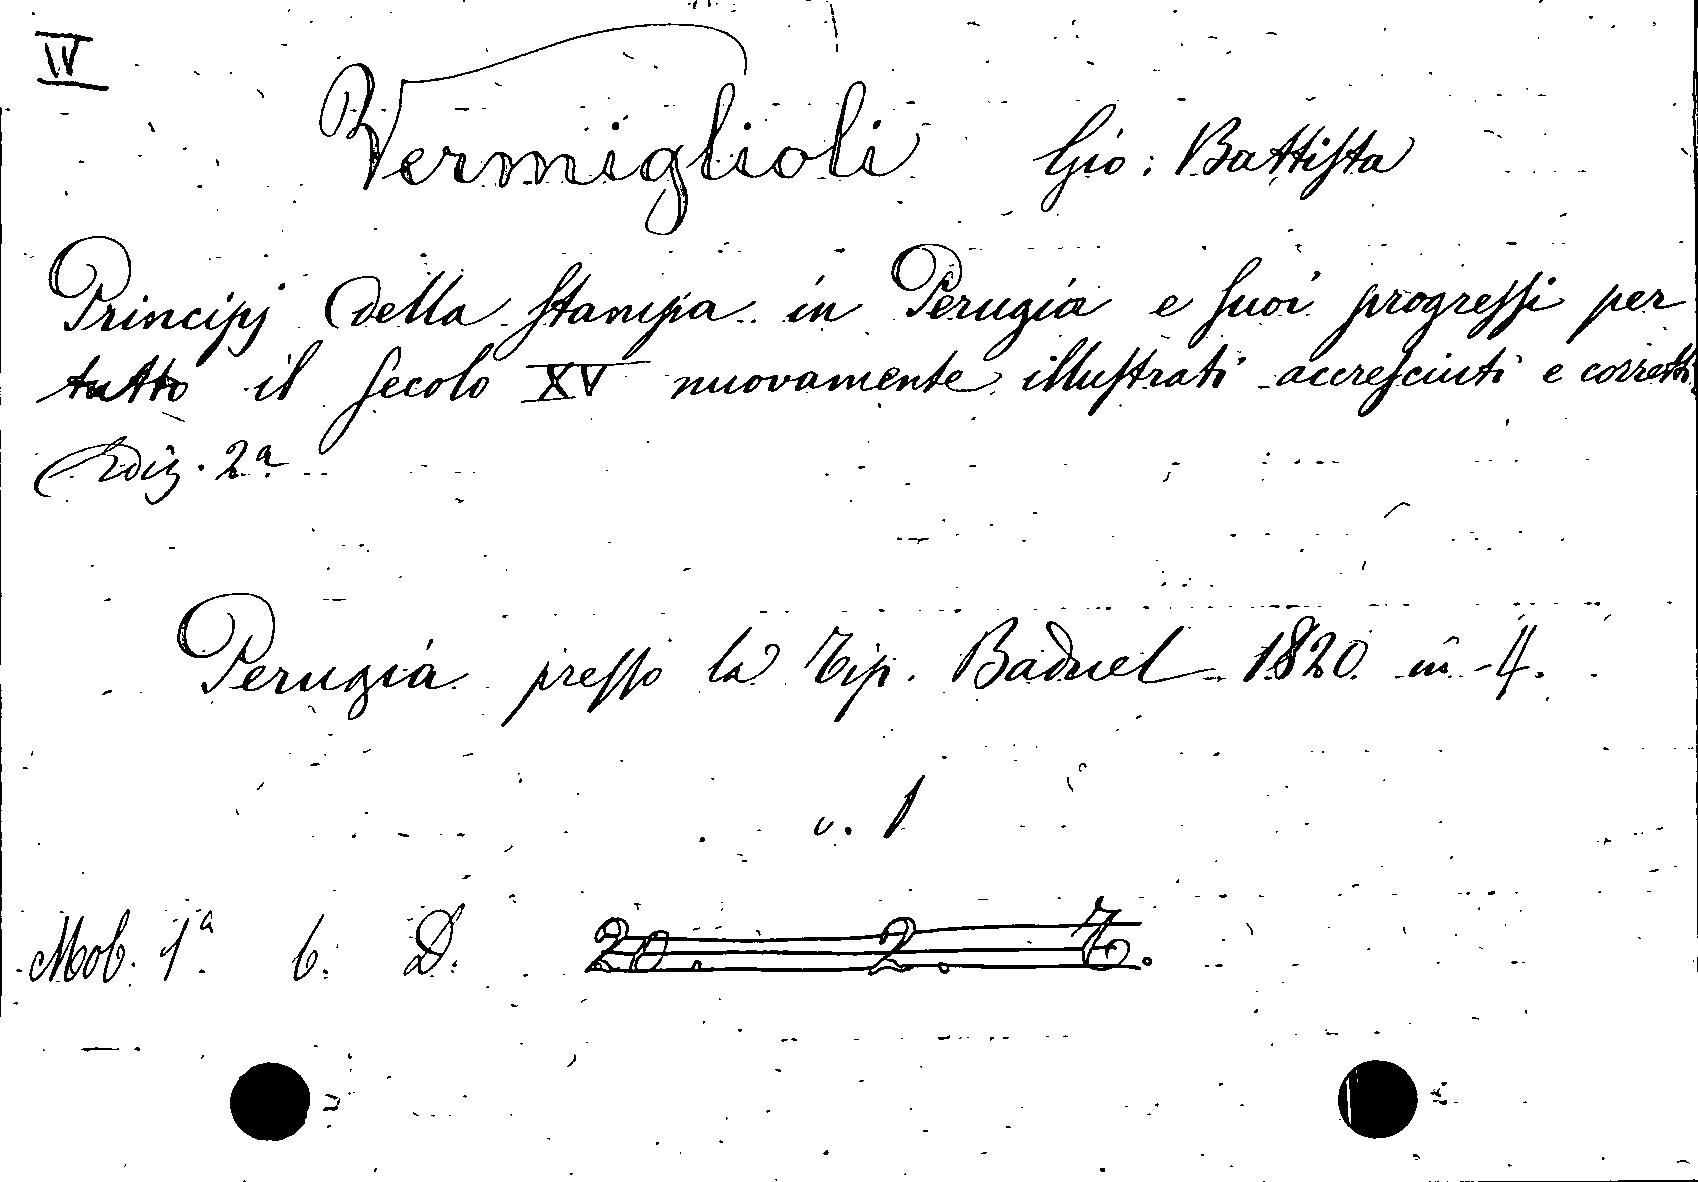 IV
Vermiglioli Gio: Battista
Principj della stampa in Perugia e suoi progressi per
tutto il secolo XV nuovamente illustrati accresciuti e corretti
Ediz. 2a
Perugia presso la Tip. Baduel 1820 in-4.
v. 1
Mob. 1a b. D. 20. 2. 7.